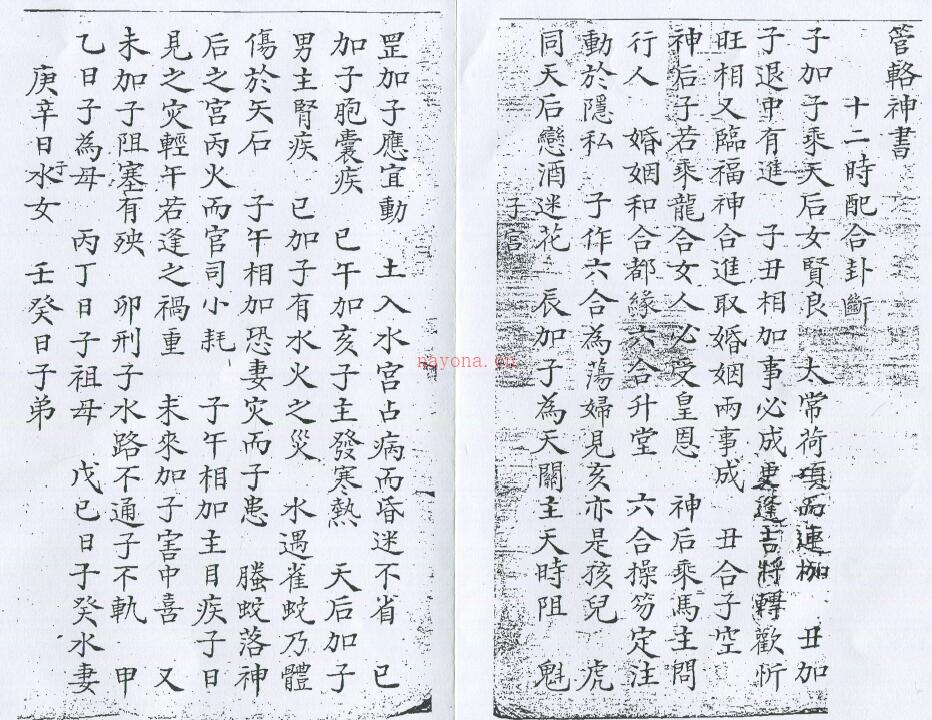 管輅神書
十二時配合卦斷
子加子乘天后女賢良　太常荷項而連枷　丑加
子退中有進　子丑相加事必成更逢吉將轉歡忻
旺相又臨福神合進取婚姻兩事成　丑合子空
神后子若乘龍合女人必受皇恩　神后乘馬主問
行人　婚姻和合都緣六合升堂　六合操笏定注
動於隱私　子作六合為蕩婦見亥亦是孩兒　虎
同天后戀酒迷花　辰加子為天關主天時阻　魁
子宮
罡加子應宜動　土入水宮占病而昏迷不省　巳
加子胞囊疾　巳午加亥子主發寒熱　天后加子
男主腎疾　巳加子有水火之災　水遇雀蛟乃體
傷於矢石　子午相加恐妻灾而子患　螣蛟落神
后之宮丙火而官司小耗　子午相加主目疾子日
見之灾輕午若逢之禍重　未來加子害中喜　又
未加子阻塞有殃　卯刑子水路不通子不軌　甲
乙日子為母　丙丁日子祖母　戊巳日子癸水妻
庚辛日水子女　壬癸日子弟
nayona.cn